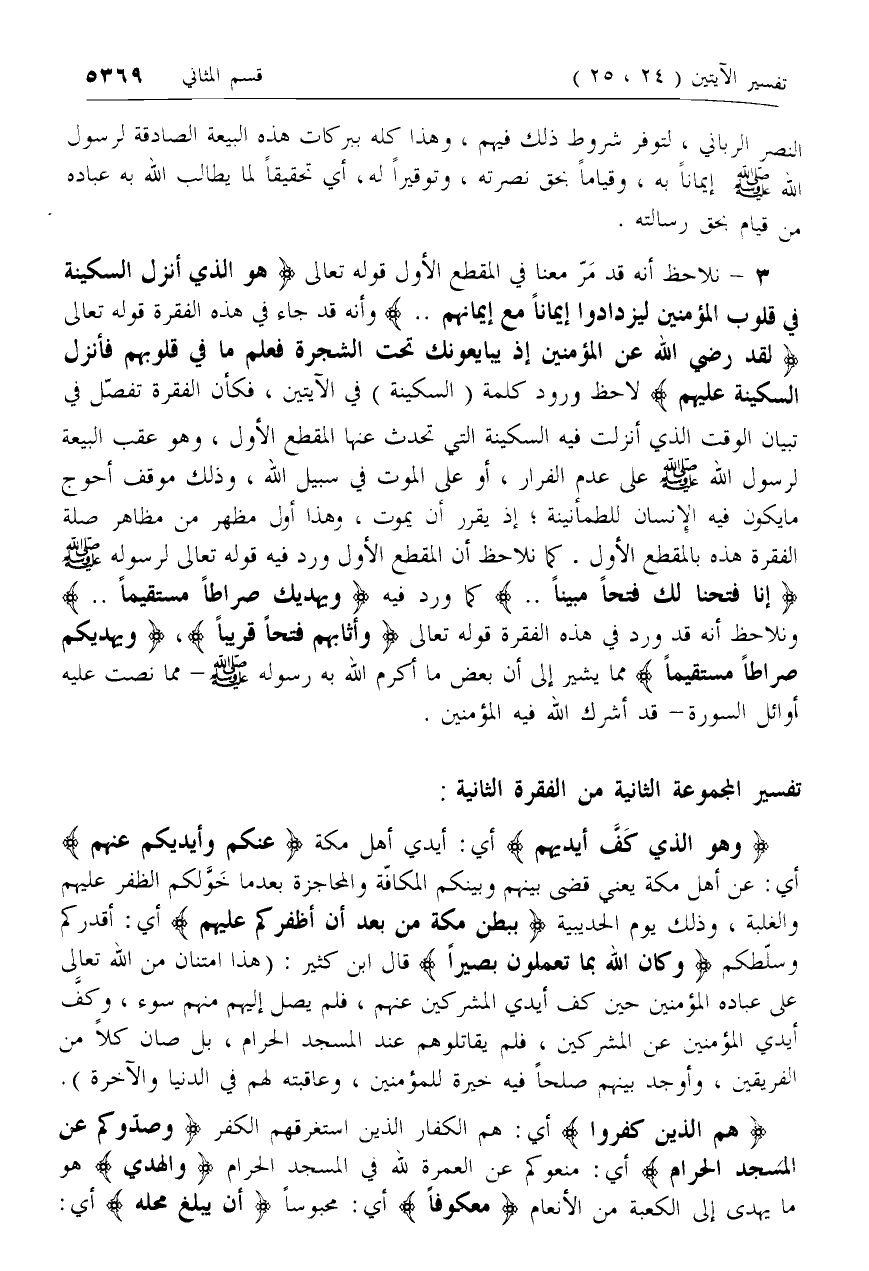 تفسير الآيتين ( ٢٤ ، ٢٥ ) قسم المثاني ٥٣٦٩
النصر الرباني ، لتوفر شروط ذلك فيهم ، وهذا كله ببركات هذه البيعة الصادقة لرسول
الله ﷺ إيماناً به ، وقياماً بحق نصرته ، وتوقيراً له، أي تحقيقاً لما يطالب الله به عباده
من قيام بحق رسالته .
٣ – نلاحظ أنه قد مَرّ معنا في المقطع الأول قوله تعالى ﴿ هو الذي أنزل السكينة
في قلوب المؤمنين ليزدادوا إيماناً مع إيمانهم .. ﴾ وأنه قد جاء في هذه الفقرة قوله تعالى
﴿ لقد رضي الله عن المؤمنين إذ يبايعونك تحت الشجرة فعلم ما في قلوبهم فأنزل
السكينة عليهم ﴾ لاحظ ورود كلمة ( السكينة ) في الآيتين ، فكأن الفقرة تفصّل في
تبيان الوقت الذي أنزلت فيه السكينة التي تحدث عنها المقطع الأول ، وهو عقب البيعة
لرسول الله ﷺ على عدم الفرار ، أو على الموت في سبيل الله ، وذلك موقف أحوج
مايكون فيه الإنسان للطمأنينة ؛ إذ يقرر أن يموت ، وهذا أول مظهر من مظاهر صلة
الفقرة هذه بالمقطع الأول . كما نلاحظ أن المقطع الأول ورد فيه قوله تعالى لرسوله ﷺ
﴿ إنا فتحنا لك فتحاً مبيناً .. ﴾ كما ورد فيه ﴿ ويهديك صراطاً مستقيماً .. ﴾
ونلاحظ أنه قد ورد في هذه الفقرة قوله تعالى ﴿ وأثابهم فتحاً قريباً ﴾، ﴿ ويهديكم
صراطاً مستقيماً ﴾ مما يشير إلى أن بعض ما أكرم الله به رسوله ﷺ– مما نصت عليه
أوائل السورة– قد أشرك الله فيه المؤمنين .
تفسير المجموعة الثانية من الفقرة الثانية :
﴿ وهو الذي كَفَّ أيديهم ﴾ أي: أيدي أهل مكة ﴿ عنكم وأيديكم عنهم ﴾
أي: عن أهل مكة يعني قضى بينهم وبينكم المكافّة والمحاجزة بعدما خَوَّلكم الظفر عليهم
والغلبة ، وذلك يوم الحديبية ﴿ ببطن مكة من بعد أن أظفركم عليهم ﴾ أي: أقدركم
وسلّطكم ﴿ وكان الله بما تعملون بصيراً ﴾ قال ابن كثير : (هذا امتنان من الله تعالى
على عباده المؤمنين حين كف أيدي المشركين عنهم ، فلم يصل إليهم منهم سوء ، وكفَّ
أيدي المؤمنين عن المشركين ، فلم يقاتلوهم عند المسجد الحرام ، بل صان كلاً من
الفريقين ، وأوجد بينهم صلحاً فيه خيرة للمؤمنين ، وعاقبته لهم في الدنيا والآخرة ).
﴿ هم الذين كفروا ﴾ أي: هم الكفار الذين استغرقهم الكفر ﴿ وصدّوكم عن
المسجد الحرام ﴾ أي: منعوكم عن العمرة لله في المسجد الحرام ﴿ والهدي ﴾ هو
ما يهدى إلى الكعبة من الأنعام ﴿ معكوفاً ﴾ أي: محبوساً ﴿ أن يبلغ محله ﴾ أي: